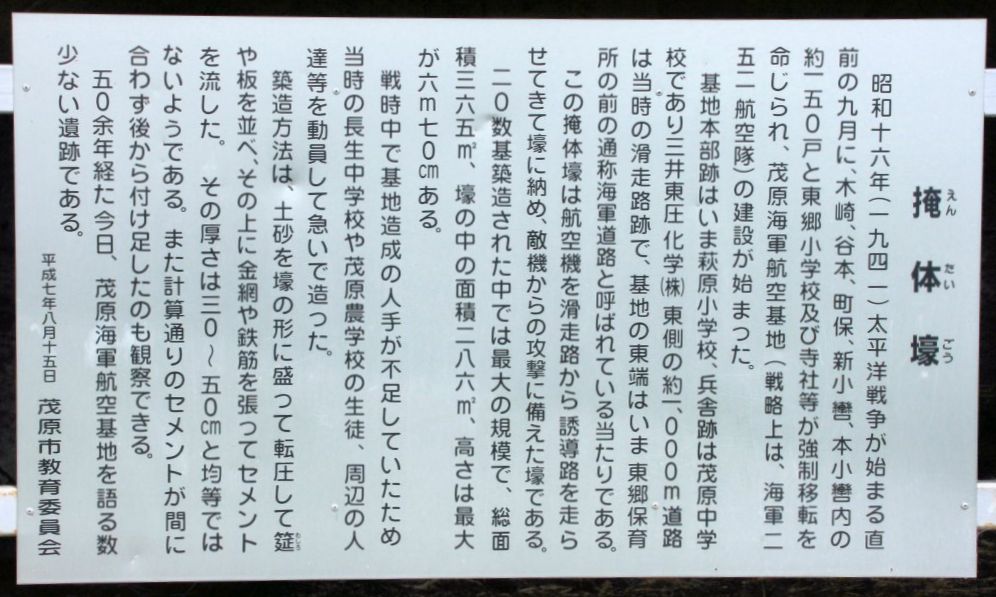 掩体壕
えんたいごう
昭和十六年(一九四一)太平洋戦争が始まる直
前の九月に、木崎、谷本、町保、新小轡、本小轡内の
約一五0戸と東郷小学校及び寺社等が強制移転を
命じられ、茂原海軍航空基地(戦略上は、海軍二
五二航空隊)の建設が始まった。
基地本部跡はいま萩原小学校、兵舎跡は茂原中学
校であり三井東圧化学㈱東側の約一、000m道路
は当時の滑走路跡で、基地の東端はいま東郷保育
所の前の通称海軍道路と呼ばれている当たりである。
この掩体壕は航空機を滑走路から誘導路を走ら
せてきて壕に納め、敵機からの攻撃に備えた壕である。
二0数基築造された中では最大の規模で、総面
積三六五㎡、壕の中の面積二八六㎡、高さは最大
が六m七0㎝ある。
戦時中で基地造成の人手が不足していたため
当時の長生中学校や茂原農学校の生徒、周辺の人
達等を動員して急いで造った。
築造方法は、土砂を壕の形に盛って転圧して筵
むしろ
や板を並べ、その上に金網や鉄筋を張ってセメント
を流した。その厚さは三0～五0㎝と均等では
ないようである。また計算通りのセメントが間に
合わず後から付け足したのも観察できる。
五0余年経た今日、茂原海軍航空基地を語る数
少ない遺跡である。
平成七年八月十五日 茂原市教育委員会